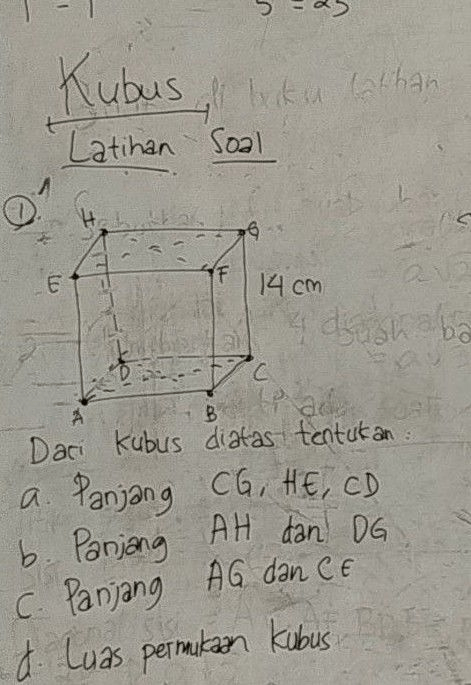 Kubus
Latihan Soal
1.
H G
E F 14 cm
D C
A B
Dari kubus diatas tentukan :
a. Panjang CG, HE, CD
b. Panjang AH dan DG
c. Panjang AG dan CE
d. Luas permukaan kubus